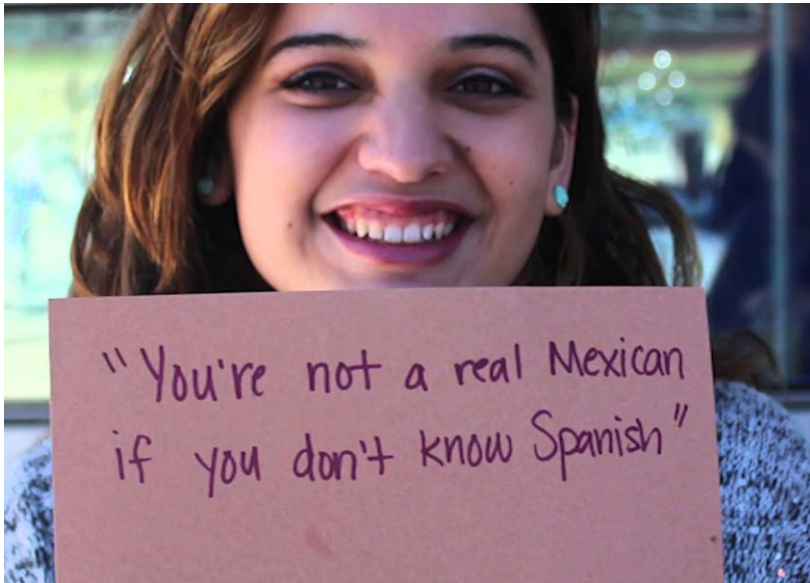 "You're not a real Mexican
if you don't know Spanish"